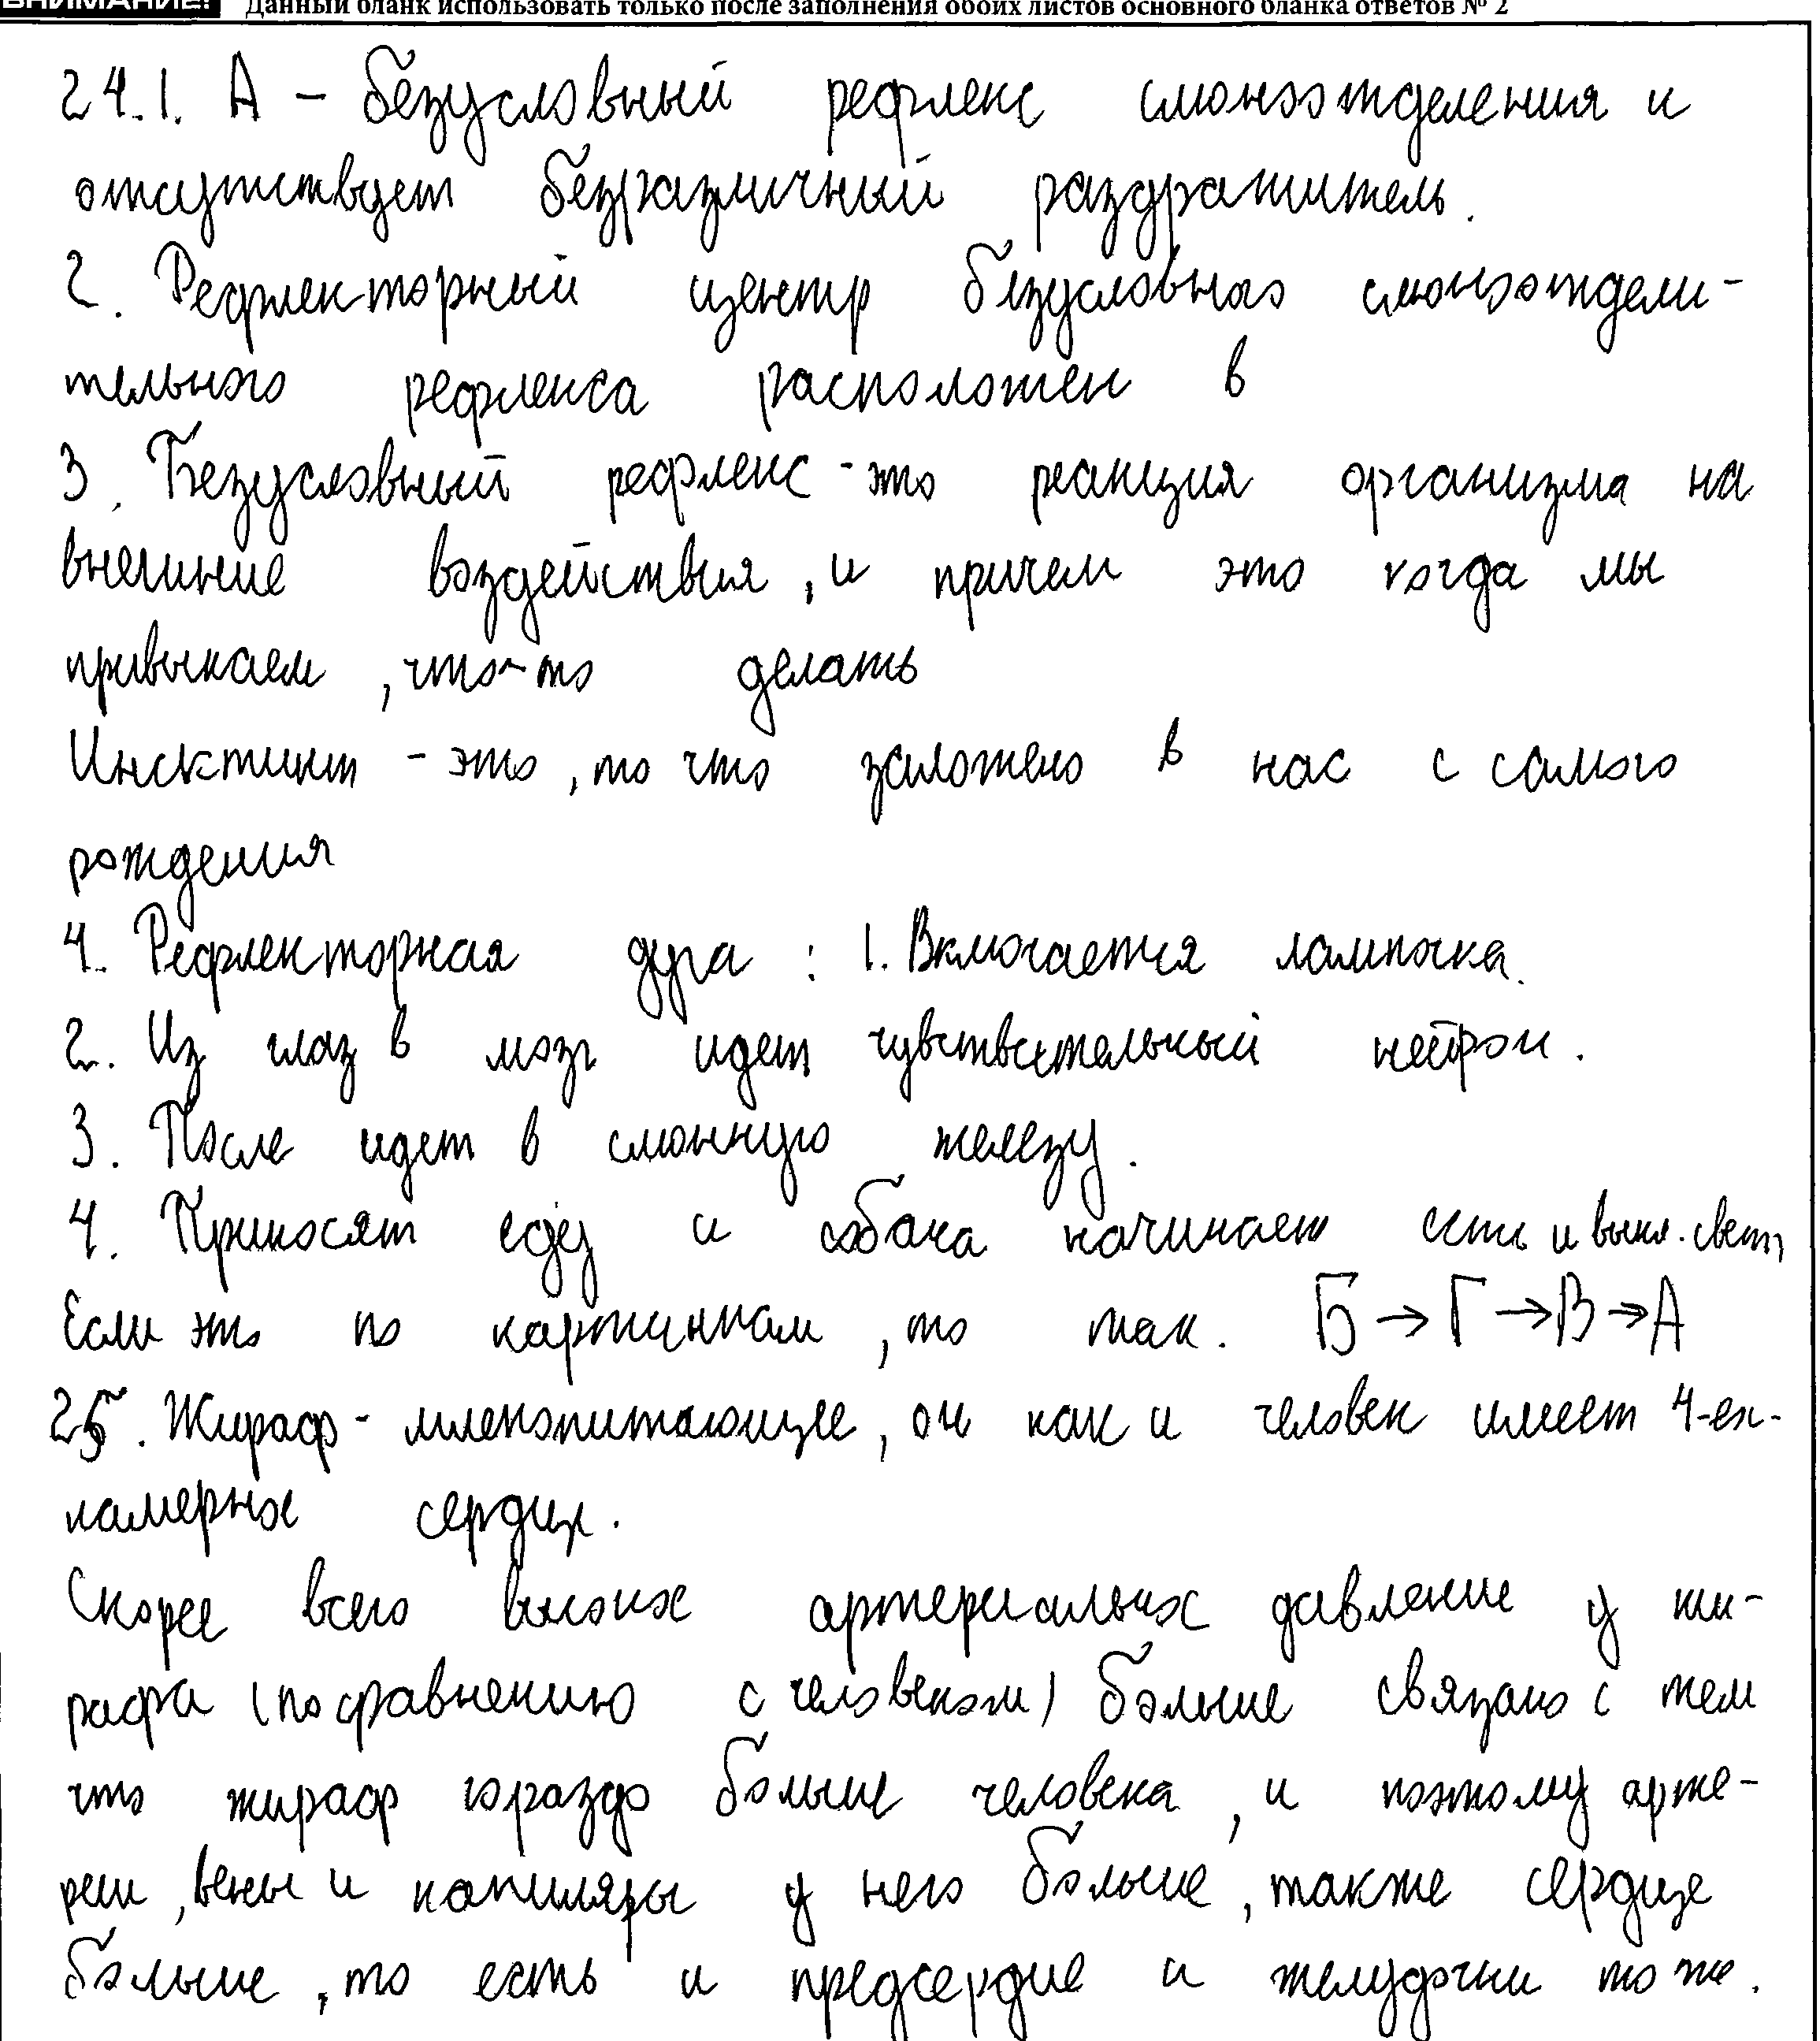 ВНИМАНИЕ! Данный бланк использовать только после заполнения обоих листов основного бланка ответов № 2
24.1. А – безусловный рефлекс слюноотделения и
отсутствует безразличный раздражитель.
2. Рефлекторный центр безусловного слюноотдели-
тельного рефлекса расположен в
3. Безусловный рефлекс - это реакция организма на
внешние воздействия, и причем это когда мы
привыкаем, что-то делать
Инсктинкт - это, то что заложено в нас с самого
рождения
4. Рефлекторная дуга : 1. Включается лампочка.
2. Из глаз в мозг идет чувствительный нейрон.
3. После идет в слюнную железу.
4. Приносят еду и собака начинает есть и выкл. свет,
Если это по картинкам, то так. Б → Г → В → А
25. Жираф - млекопитающее, он как и человек имеет 4-ех-
камерное сердце.
Скорее всего высокое артериальное давление у жи-
рафа (по сравнению с человеком) больше связано с тем
что жираф гораздо больше человека, и поэтому арте-
рии, вены и капиляры у него больше, также сердце
больше, то есть и предсердие и желудочки то же.